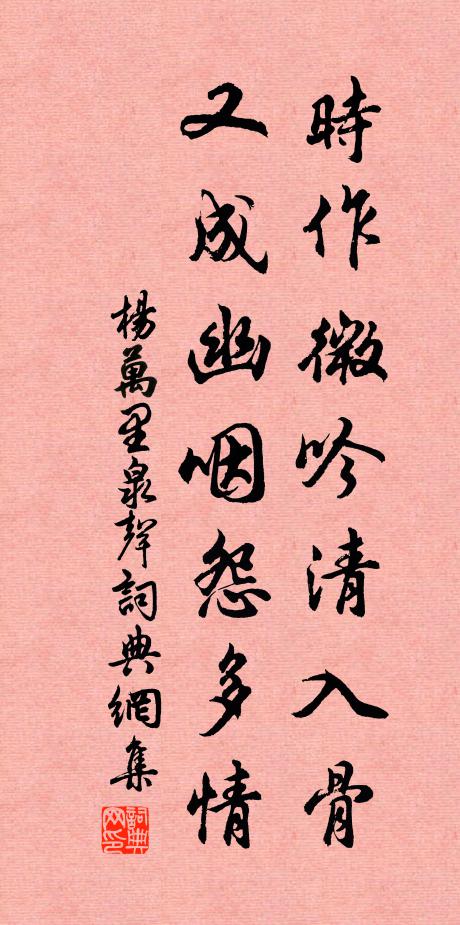 時作微吟清入骨
又成幽咽怨多情
楊萬里泉聲詞典網集
詞典网印